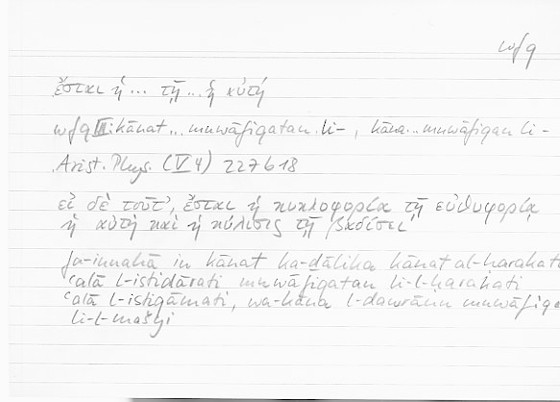 wfq
ἔσται ἡ ... τῇ ... ἡ αὐτή
wfq III: kānat ... muwāfiqatan li-, kāna ... muwāfiqan li-
Arist. Phys. (V 4) 227b18
εἰ δὲ τοῦτ', ἔσται ἡ κυκλοφορία τῇ εὐθυφορίᾳ
ἡ αὐτή καὶ ἡ κύλισις τῇ βαδίσει
fa-innahā in kānat ka-ḏālika kānat al-ḥarakatu
ʿalā l-istidārati muwāfiqatan li-l-ḥarakati
ʿalā l-istiqāmati, wa-kāna l-dawrānu muwāfiqa
li-l-mašyi